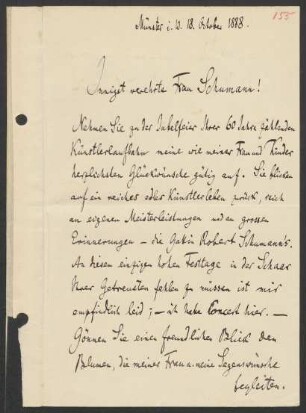 155
Münster i. W. 18. October 1888.
Innigst verehrte Frau Schumann!
Nehmen Sie zu der Jubelfeier Ihrer 60 Jahre zählenden
Künstlerlaufbahn meine wie meiner Frau und Kinder
herzlichsten Glückwünsche gütig auf. Sie blicken
auf ein reiches edles Künstlerleben zurück, reich
an eigenen Meisterleistungen und an grossen
Erinnerungen – die Gattin Robert Schumann's.
An diesem einzigen hohen Festtage in der Schaar
Ihrer Getreuesten fehlen zu müssen ist mir
empfindlich leid; – ich habe Concert hier. –
Gönnen Sie einen freundlichen Blick den
Blumen, die meiner Frau u. meine Segenswünsche
begleiten.